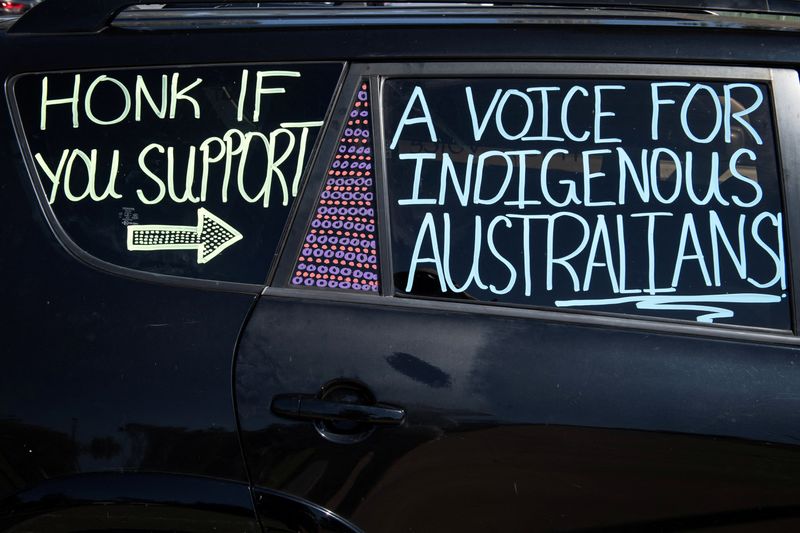 HONK IF
YOU SUPPORT
A VOICE FOR
INDIGENOUS
AUSTRALIANS!